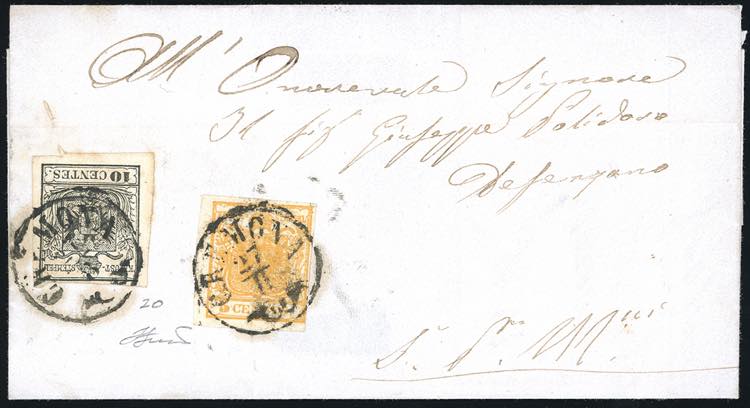 All' Onorevole Signore
Il sig Giuseppe Polidoro
Desenzano
S. P. M.
10 CENTES
CREMONA
20
CREMONA
CENTES